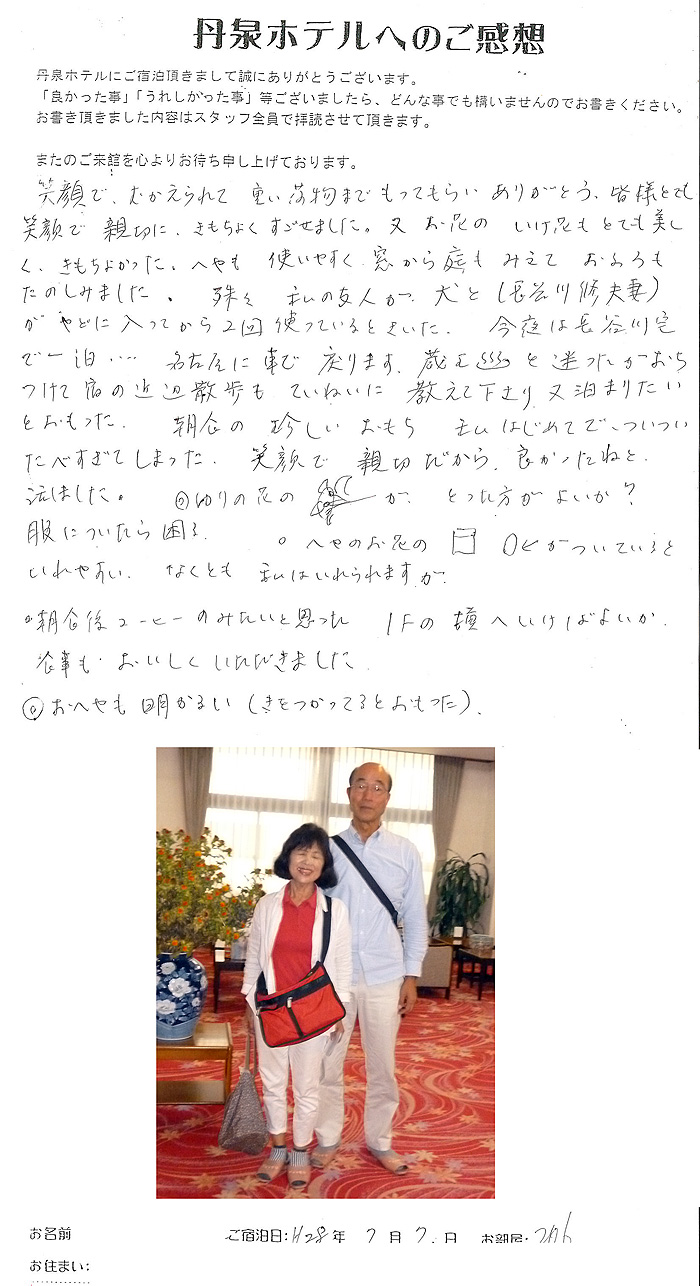 丹泉ホテルへのご感想
丹泉ホテルにご宿泊頂きまして誠にありがとうございます。
「良かった事」「うれしかった事」等ございましたら、どんな事でも構いませんのでお書きください。
お書き頂きました内容はスタッフ全員で拝読させて頂きます。
またのご来館を心よりお待ち申し上げております。
笑顔で、むかえられて 重い荷物まで もってもらい ありがとう、皆様とても
笑顔で 親切に、きもちよく すごせました。又 お花の いけ花も とても美し
く、きもちよかった、へやも 使いやすく 窓から庭も みえて おふろも
たのしみました。 殊に 私の友人が 犬と (長谷川修夫妻)
が やどに 入ってから 2回 使っているときいた. 今夜は長谷川宅
で一泊‥‥ 名古屋に車で 戻ります、 と迷ったがおち
つけて 宿の近辺散歩も ていねいに 教えて下さり、又泊まりたい
とおもった. 朝食の 珍しい おもち 私 はじめてで、ついつい
たべすぎてしまった. 笑顔で 親切だから、良かったねと.
話しました。 ◎ゆりの花の が、とった方がよいか?
服についたら困る. ○ へやのお花の がついていると
いれやすい. なくとも 私はいれられますが.
○朝食後コーヒーのみたいと思った 1Fの 横へいけばよいか.
食事も おいしく いただきました.
◎おへやも 明かるい (きをつかってるとおもった).
お名前 ご宿泊日:H28年 7月 7.日 お部屋:
お住まい: